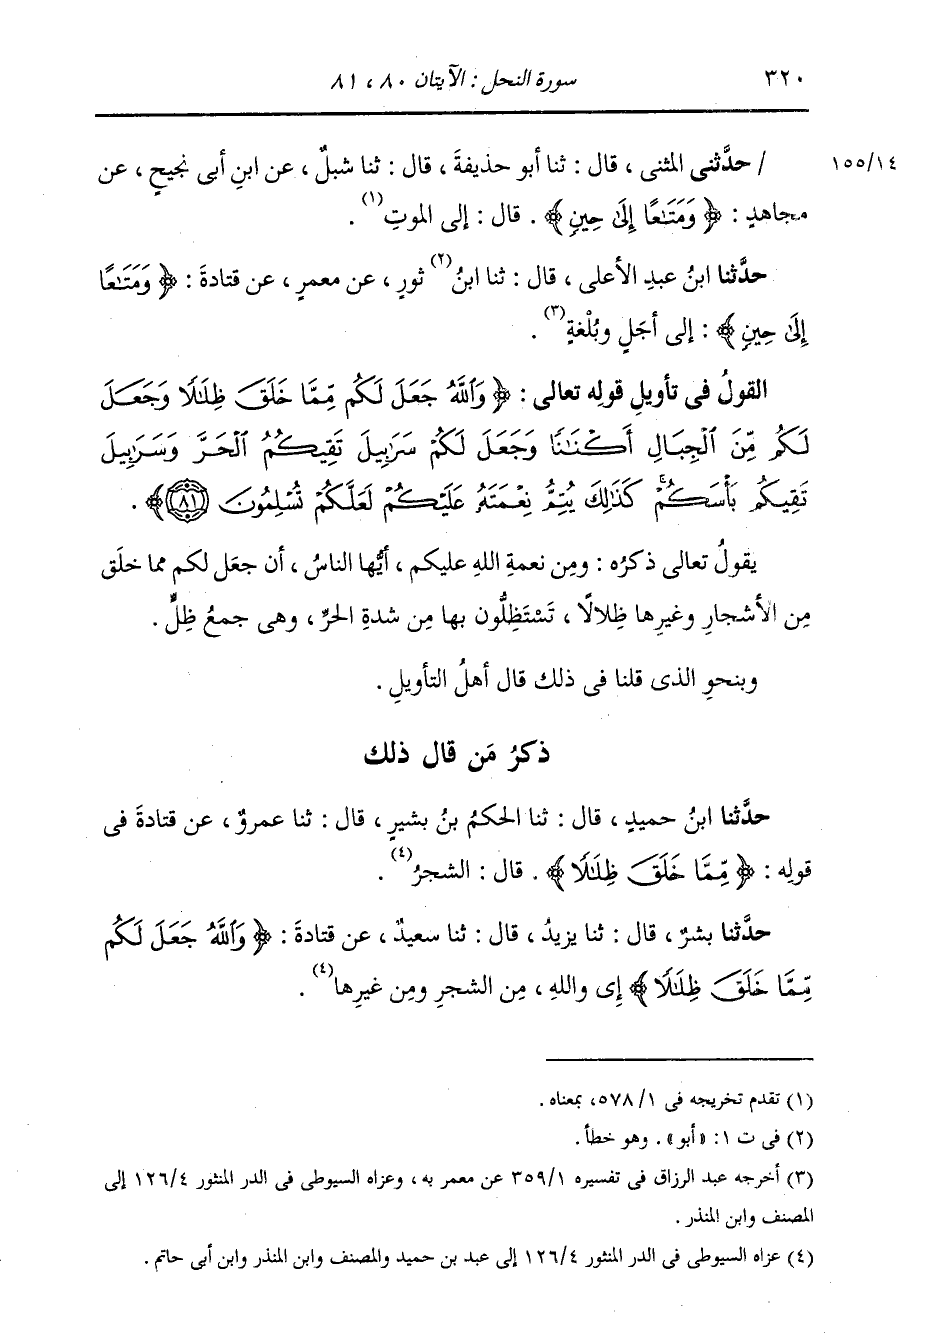 ٣٢٠ سورة النحل : الآيتان ٨٠ ، ٨١
١٥٥/١٤ / حدَّثنى المثنى ، قال : ثنا أبو حذيفةَ ، قال : ثنا شبلٌ ، عن ابنِ أبى نجيحٍ ، عن
مجاهدٍ : ﴿ وَمَتَـٰعًا إِلَىٰ حِينٍ ﴾ . قال : إلى الموتِ(١) .
حدَّثنا ابنُ عبدِ الأعلى ، قال : ثنا ابنُ(٢) ثورٍ ، عن معمرٍ ، عن قتادةَ : ﴿ وَمَتَـٰعًا
إِلَىٰ حِينٍ ﴾ : إلى أجَلٍ وبُلْغةٍ(٣) .
القولُ فى تأويلِ قولِه تعالى : ﴿ وَٱللَّهُ جَعَلَ لَكُم مِّمَّا خَلَقَ ظِلَـٰلًا وَجَعَلَ
لَكُم مِّنَ ٱلْجِبَالِ أَكْنَـٰنًا وَجَعَلَ لَكُمْ سَرَٰبِيلَ تَقِيكُمُ ٱلْحَرَّ وَسَرَٰبِيلَ
تَقِيكُم بَأْسَكُمْ ۚ كَذَٰلِكَ يُتِمُّ نِعْمَتَهُۥ عَلَيْكُمْ لَعَلَّكُمْ تُسْلِمُونَ ٨١ ﴾ .
يقولُ تعالى ذكرُه : ومِن نعمةِ اللهِ عليكم ، أيُّها الناسُ ، أن جعَل لكم مما خلَق
مِن الأشجارِ وغيرِها ظِلالًا ، تَسْتَظِلُّون بها مِن شدةِ الحرِّ ، وهى جمعُ ظِلٍّ .
وبنحوِ الذى قلنا فى ذلك قال أهلُ التأويلِ .
ذكرُ مَن قال ذلك
حدَّثنا ابنُ حميدٍ ، قال : ثنا الحكمُ بنُ بشيرٍ ، قال : ثنا عمروٌ ، عن قتادةَ فى
قولِه : ﴿ مِّمَّا خَلَقَ ظِلَـٰلًا ﴾ . قال : الشجرُ(٤) .
حدَّثنا بشرٌ ، قال : ثنا يزيدُ ، قال : ثنا سعيدٌ ، عن قتادةَ : ﴿ وَٱللَّهُ جَعَلَ لَكُم
مِّمَّا خَلَقَ ظِلَـٰلًا ﴾ إى واللهِ ، مِن الشجرِ ومِن غيرِها(٤) .
(١) تقدم تخريجه فى ١/ ٥٧٨، بمعناه .
(٢) فى ت ١: «أبو» . وهو خطأ .
(٣) أخرجه عبد الرزاق فى تفسيره ٣٥٩/١ عن معمر به ، وعزاه السيوطى فى الدر المنثور ١٢٦/٤ إلى
المصنف وابن المنذر .
(٤) عزاه السيوطى فى الدر المنثور ١٢٦/٤ إلى عبد بن حميد والمصنف وابن المنذر وابن أبى حاتم .